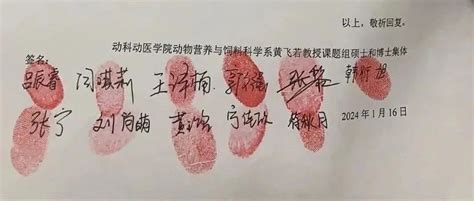 以上，敬祈回复。
动科动医学院动物营养与饲料科学系黄飞若教授课题组硕士和博士集体
签名：
吕辰睿 闫祺莉 王泽楠 韩衍旭
张宁 刘 萌 黄 徐秋月 2024 年 1 月 16 日